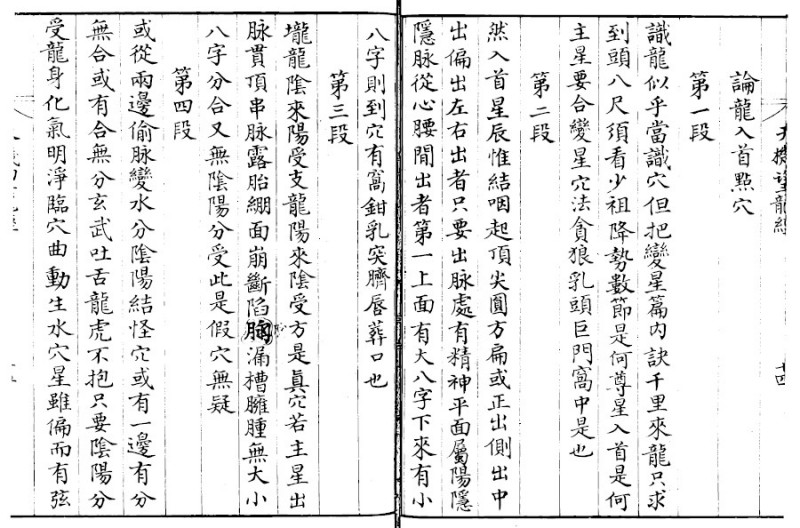 論龍入首點穴
第一段
識龍似乎當識穴但把變星篇內訣千里來龍只求
到頭八尺須看少祖降勢數節是何尊星入首是何
主星要合變星穴法貪狼乳頭巨門窩中是也
第二段
然入首星辰惟結咽起頂尖圓方扁或正出側出中
出偏出左右出者只要出脉處有精神平面屬陽隱
隱脉從心腰間出者第一上面有大八字下來有小
八字則到穴有窩鉗乳突臍唇葬口也
第三段
壠龍陰來陽受支龍陽來陰受方是眞穴若主星出
脉貫頂串脉露胎綳面崩斷陷漏槽臃腫無大小
八字分合又無陰陽分受此是假穴無疑
第四段
或從兩邊偷脉變水分陰陽結怪穴或有一邊有分
無合或有合無分玄武吐舌龍虎不抱只要陰陽分
受龍身化氣明淨臨穴曲動生水穴星雖偏而有弦